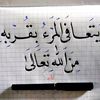 يتعافى المرء بقربه
من الله تعالى